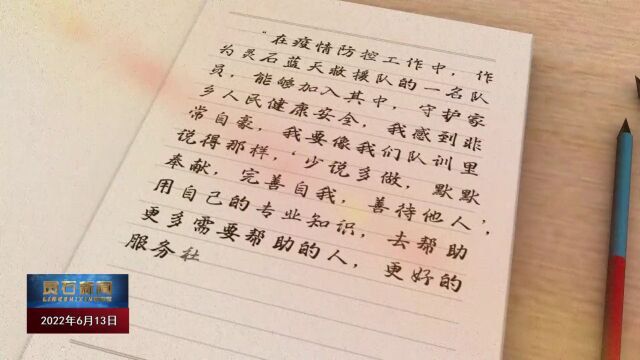 “在疫情防控工作中，作
为灵石蓝天救援队的一名队
员，能够加入其中，守护家
乡人民健康安全，我感到非
常自豪，我要像我们队训里
说得那样，‘少说多做，默默
奉献，完善自我，善待他人’，
用自己的专业知识，去帮助
更多需要帮助的人，更好的
服务社
灵石新闻
LINGSHIXINWEN
2022年6月13日